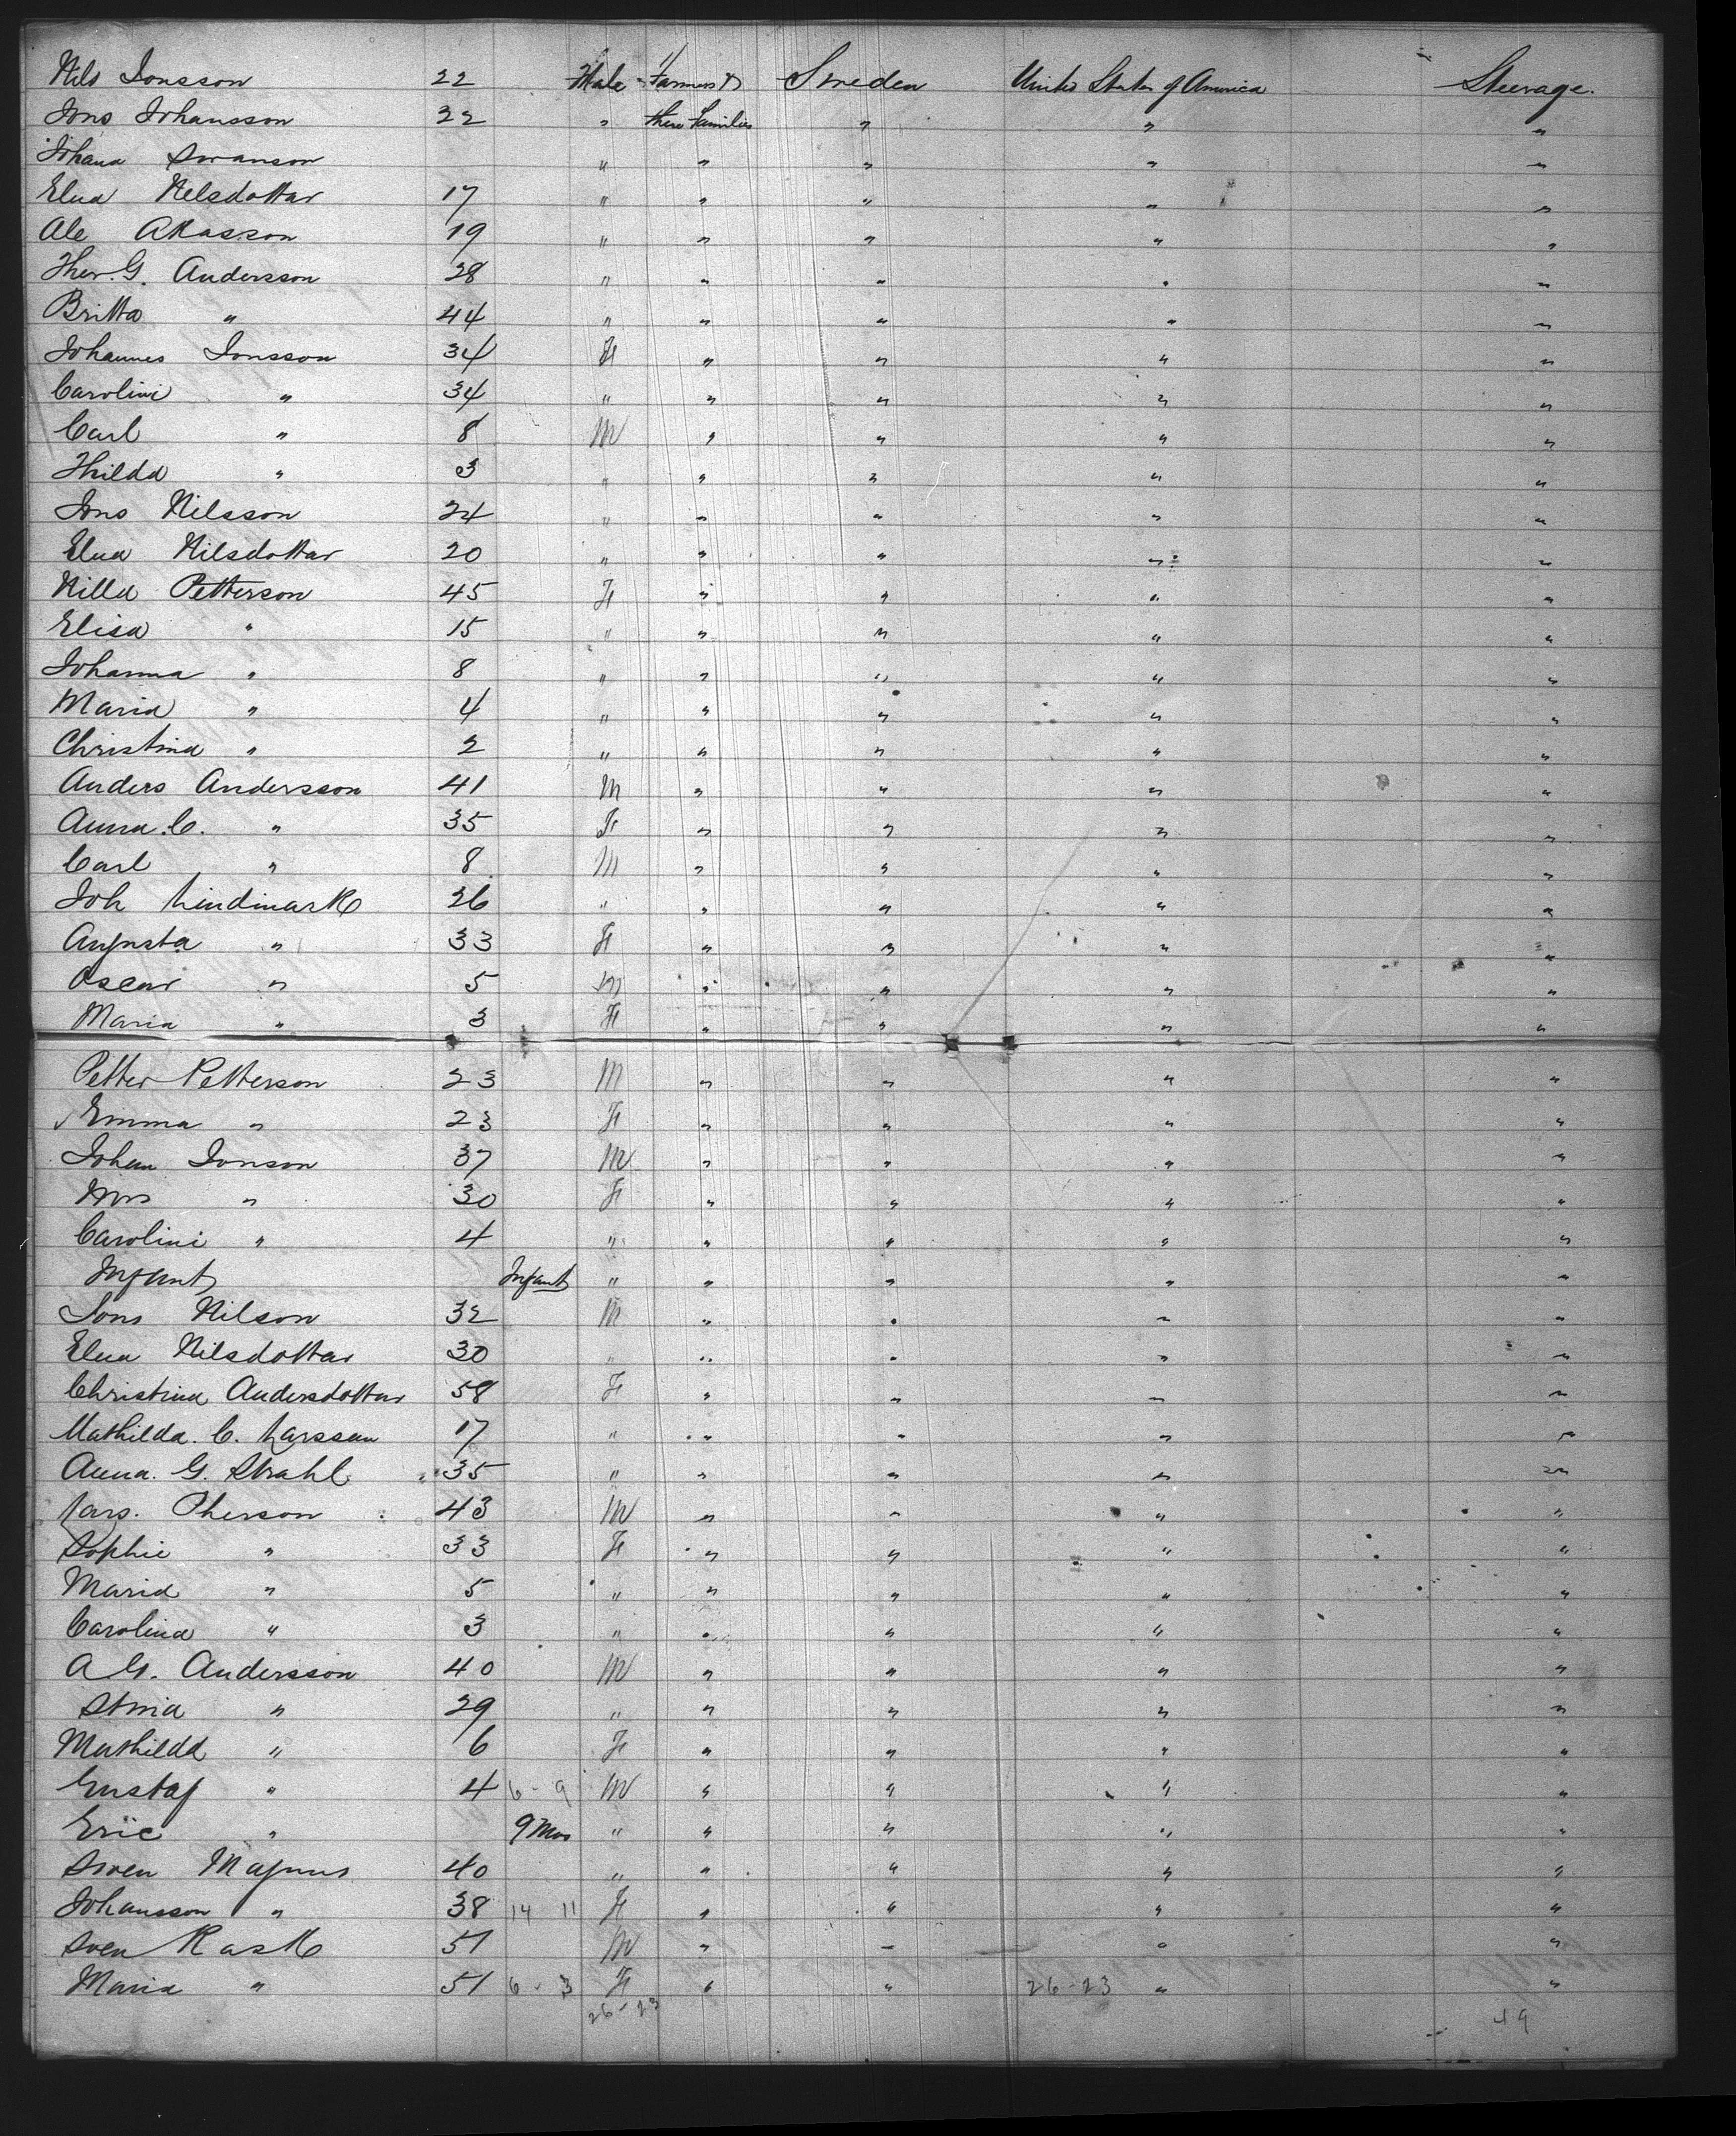 Nils Jonsson 22 Male Farmers & Sweden United States of America Steerage.
Jons Johansson 22 " there Families " " "
Johana Swanson " " " " "
Elna Nelsdottar 17 " " " " "
Ale Akasson 19 " " " " "
Ther. G. Andersson 28 " " " " "
Britta " 44 " " " " "
Johannes Jonsson 34 F " " " "
Carolini " 34 " " " " "
Carl " 8 M " " " "
Thilda " 3 " " " " "
Jons Nilsson 24 " " " " "
Elna Nilsdottar 20 " " " " "
Nilla Petterson 45 F " " " "
Elisa " 15 " " " " "
Johanna " 8 " " " " "
Maria " 4 " " " " "
Christina " 2 " " " " "
Anders Andersson 41 M " " " "
Anna. C. " 35 F " " " "
Carl " 8 M " " " "
Joh Lindmark 26 " " " " "
Augusta " 33 F " " " "
Oscar " 5 M " " " "
Maria " 3 F " " " "
Petter Petterson 23 M " " " "
Emma " 23 F " " " "
Johan Jonson 37 M " " " "
Mrs " 30 F " " " "
Carolini " 4 " " " " "
Infant Infant " " " " "
Jons Nilson 32 M " " " "
Elna Nilsdottar 30 " " " " "
Christina Andersdottar 58 F " " " "
Mathilda. C. Larssen 17 " " " " "
Anna. G. Strahl 35 " " " " "
Lars. Pherson 43 M " " " "
Sophie " 33 F " " " "
Maria " 5 " " " " "
Carolina " 3 " " " " "
A G. Andersson 40 M " " " "
Stina " 29 " " " " "
Mathilda " 6 F " " " "
Gustaf " 4 6 - 9 M " " " "
Eric " 9 Mos " " " " "
Swen Magnus 40 " " " " "
Johansson " 38 14 11 F " " " "
Sven Rask 51 M " " " "
Maria " 51 6 - 3 F " " 26-23 " "
26-23 49